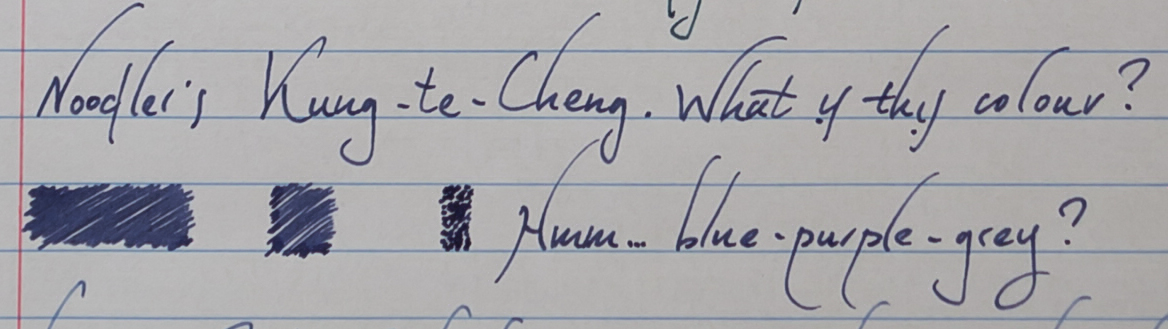 Noodler's Kung-te-Cheng. What is this colour?
Hmm... blue-purple-grey?